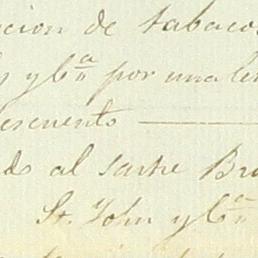 cion de tabaco
y Cª por una le
escuento
do al sastre Br
St. John y Cª